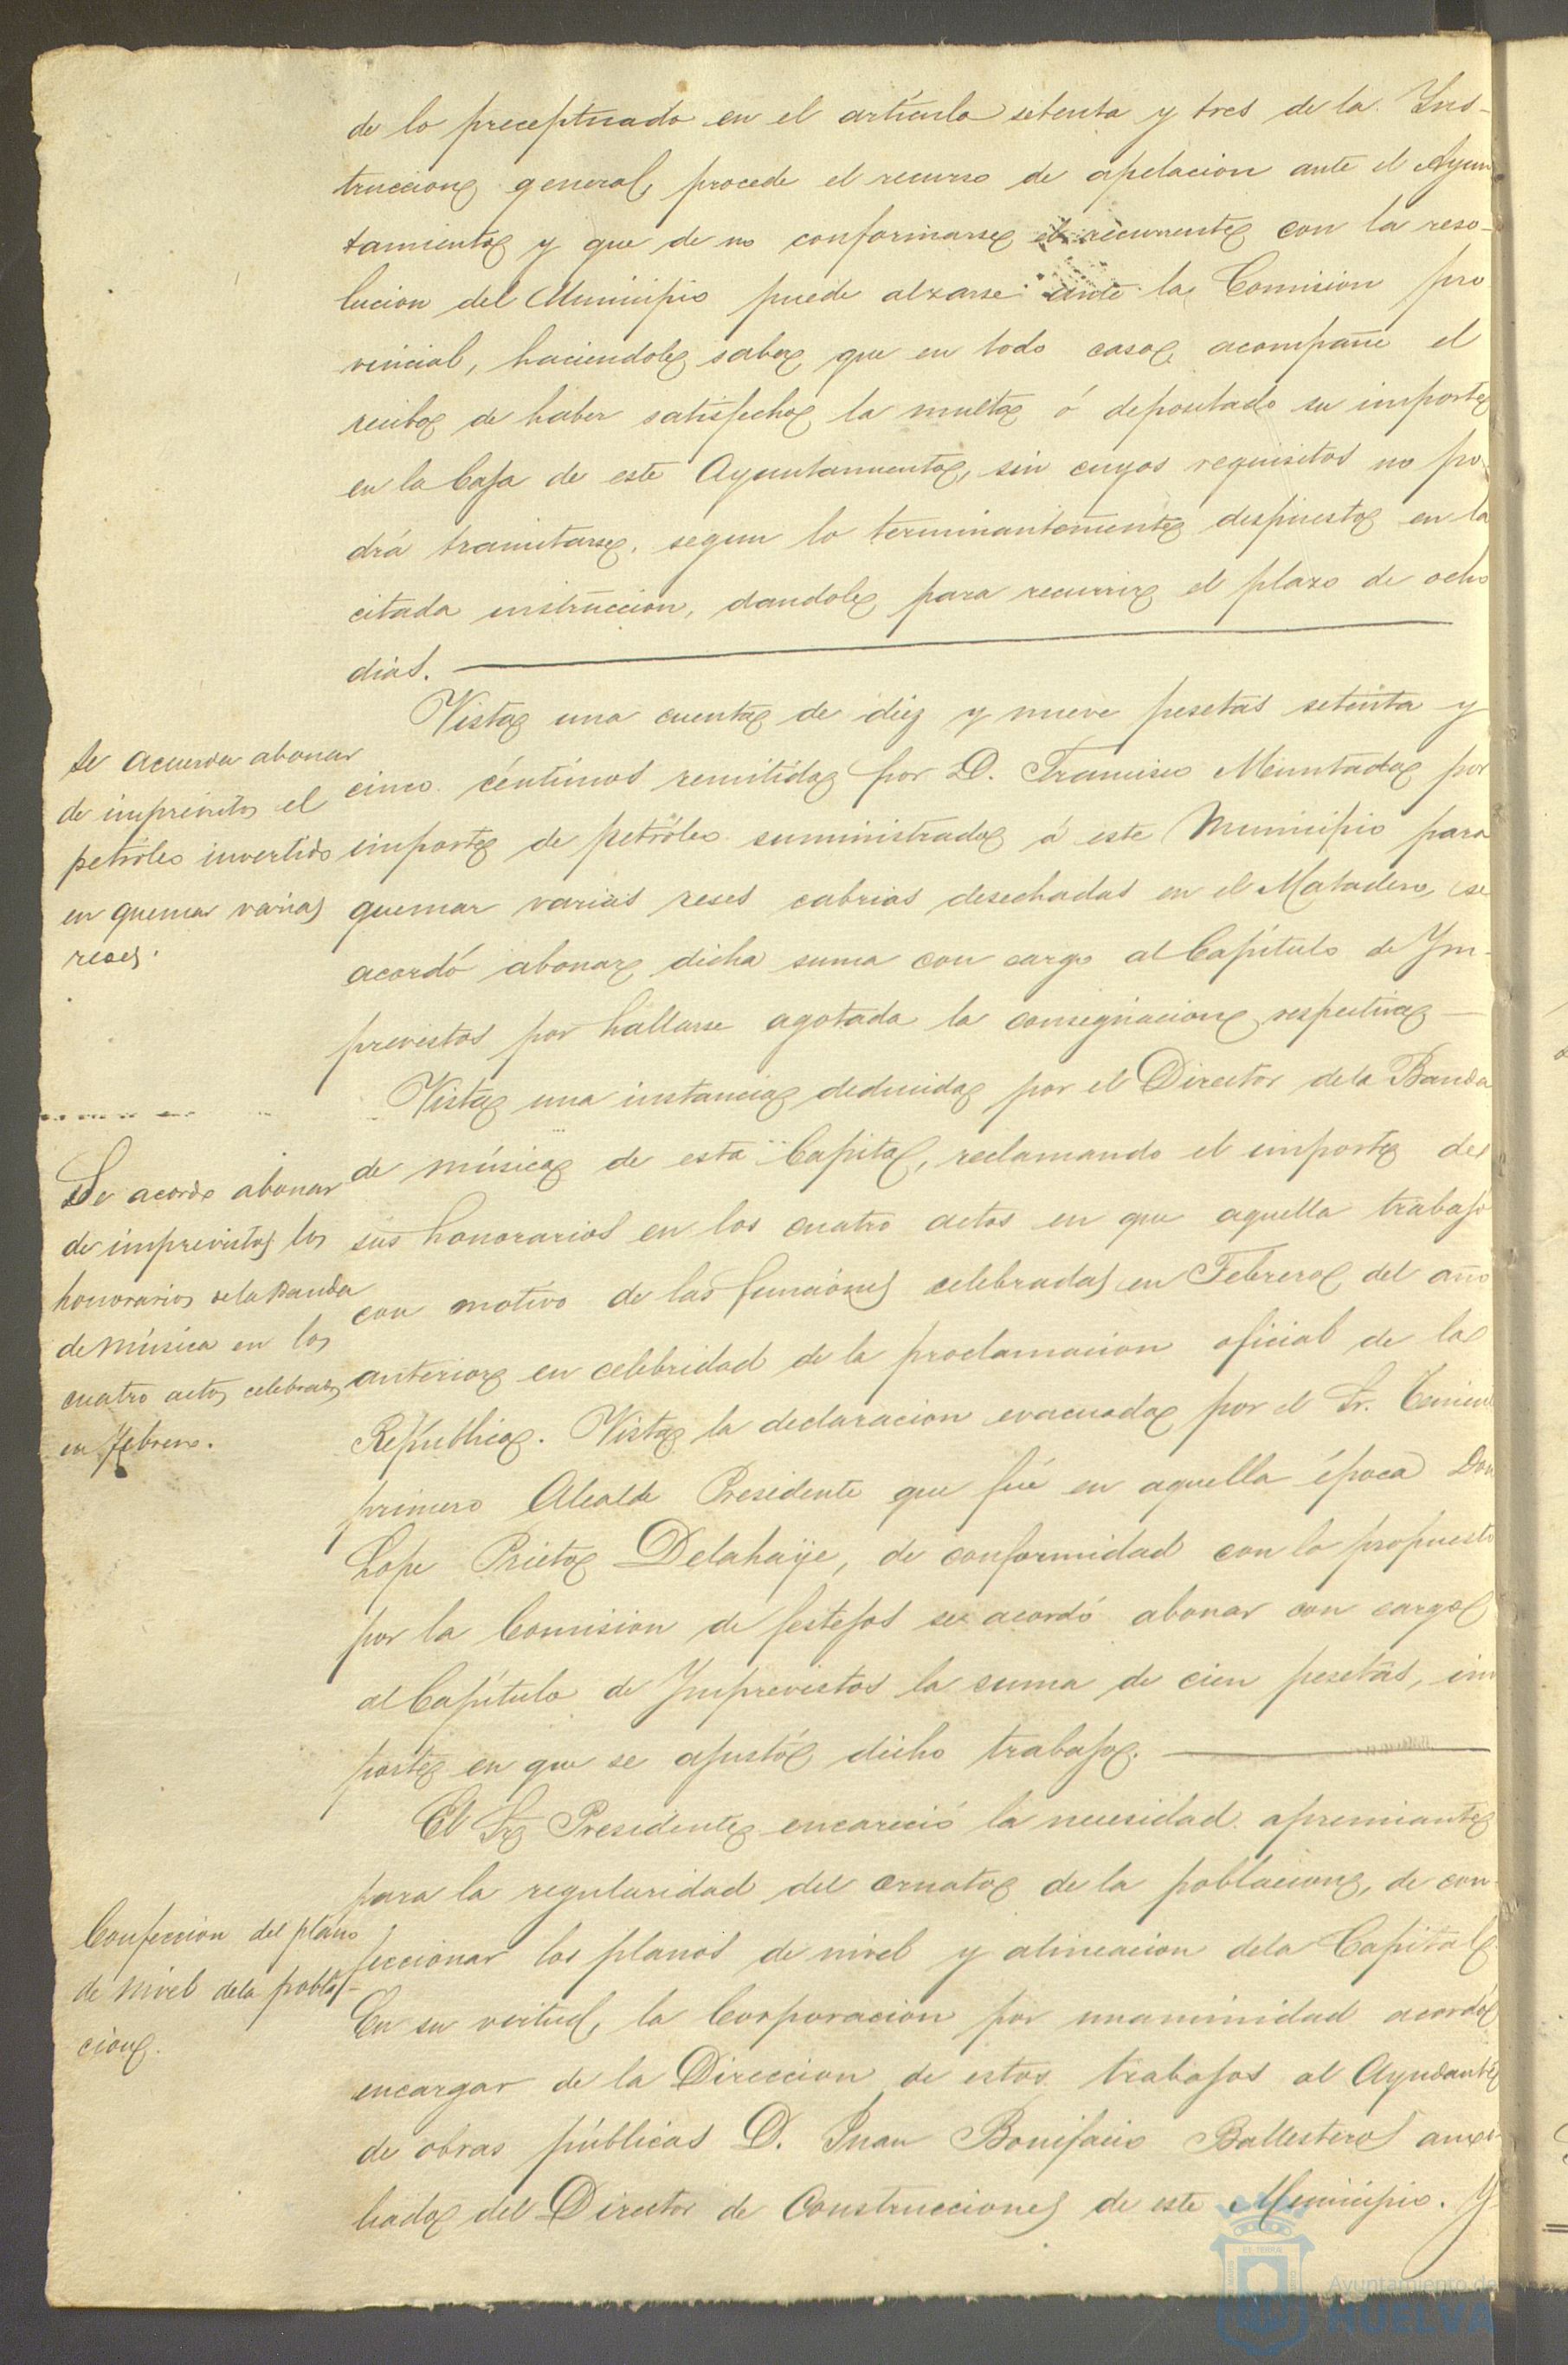 de lo preceptuado en el artículo setenta y tres de la Ins-
truccion general, procede el recurso de apelacion ante el Ayun
tamiento y que de no conformarse el recurrente con la reso-
lucion del Municipio puede alzarse ante la Comision pro
vincial, haciendole saber que en todo caso, acompañe el
recibo de haber satisfecho la multa ó depositado su importe
en la Caja de este Ayuntamiento, sin cuyos requisitos no po-
drá tramitarse, segun lo terminantemente dispuesto en la
citada instruccion, dandole para recurrir el plazo de ocho
dias.
Se acuerda abonar
de imprevistos el
petróleo invertido
en quemar varias
reses.
Vista una cuenta de diez y nueve pesetas setenta y
cinco céntimos remitida por D. Francisco Muntada por
importe de petróleo suministrado á este Municipio para
quemar varias reses cabrias desechadas en el Matadero, se
acordó abonar dicha suma con cargo al Capítulo de Im-
previstos por hallarse agotada la consignacion respectiva
Se acordo abonar
de imprevistos los
honorarios dela Banda
de Música en los
cuatro actos celebrados
en Febrero.
Vista una instancia deducida por el Director dela Banda
de música de esta Capital, reclamando el importe de
sus honorarios en los cuatro actos en que aquella trabajó
con motivo de las funciones celebradas en Febrero del año
anterior en celebridad de la proclamacion oficial de la
República. Vista la declaracion evacuada por el Sr. Teniente
primero Alcalde Presidente que fué en aquella época Don
Lope Prieto Delahaÿe, de conformidad con lo propuesto
por la Comision de festejos se acordó abonar con cargo
al Capítulo de Imprevistos la suma de cien pesetas, im
porte en que se ajustó dicho trabajo.
Confeccion del plano
de nivel dela pobla-
cion.
El Sr Presidente encareció la necesidad apremiante
para la regularidad del ornato de la poblacion, de con-
feccionar los planos de nivel y alineacion dela Capital
En su virtud, la Corporacion por unanimidad acordó
encargar de la Direccion de estos trabajos al Ayudante
de obras públicas D. Juan Bonifacio Ballesteros auxi-
liado del Director de Construcciones de este Municipio. Y
Ayuntamiento de
HUELVA